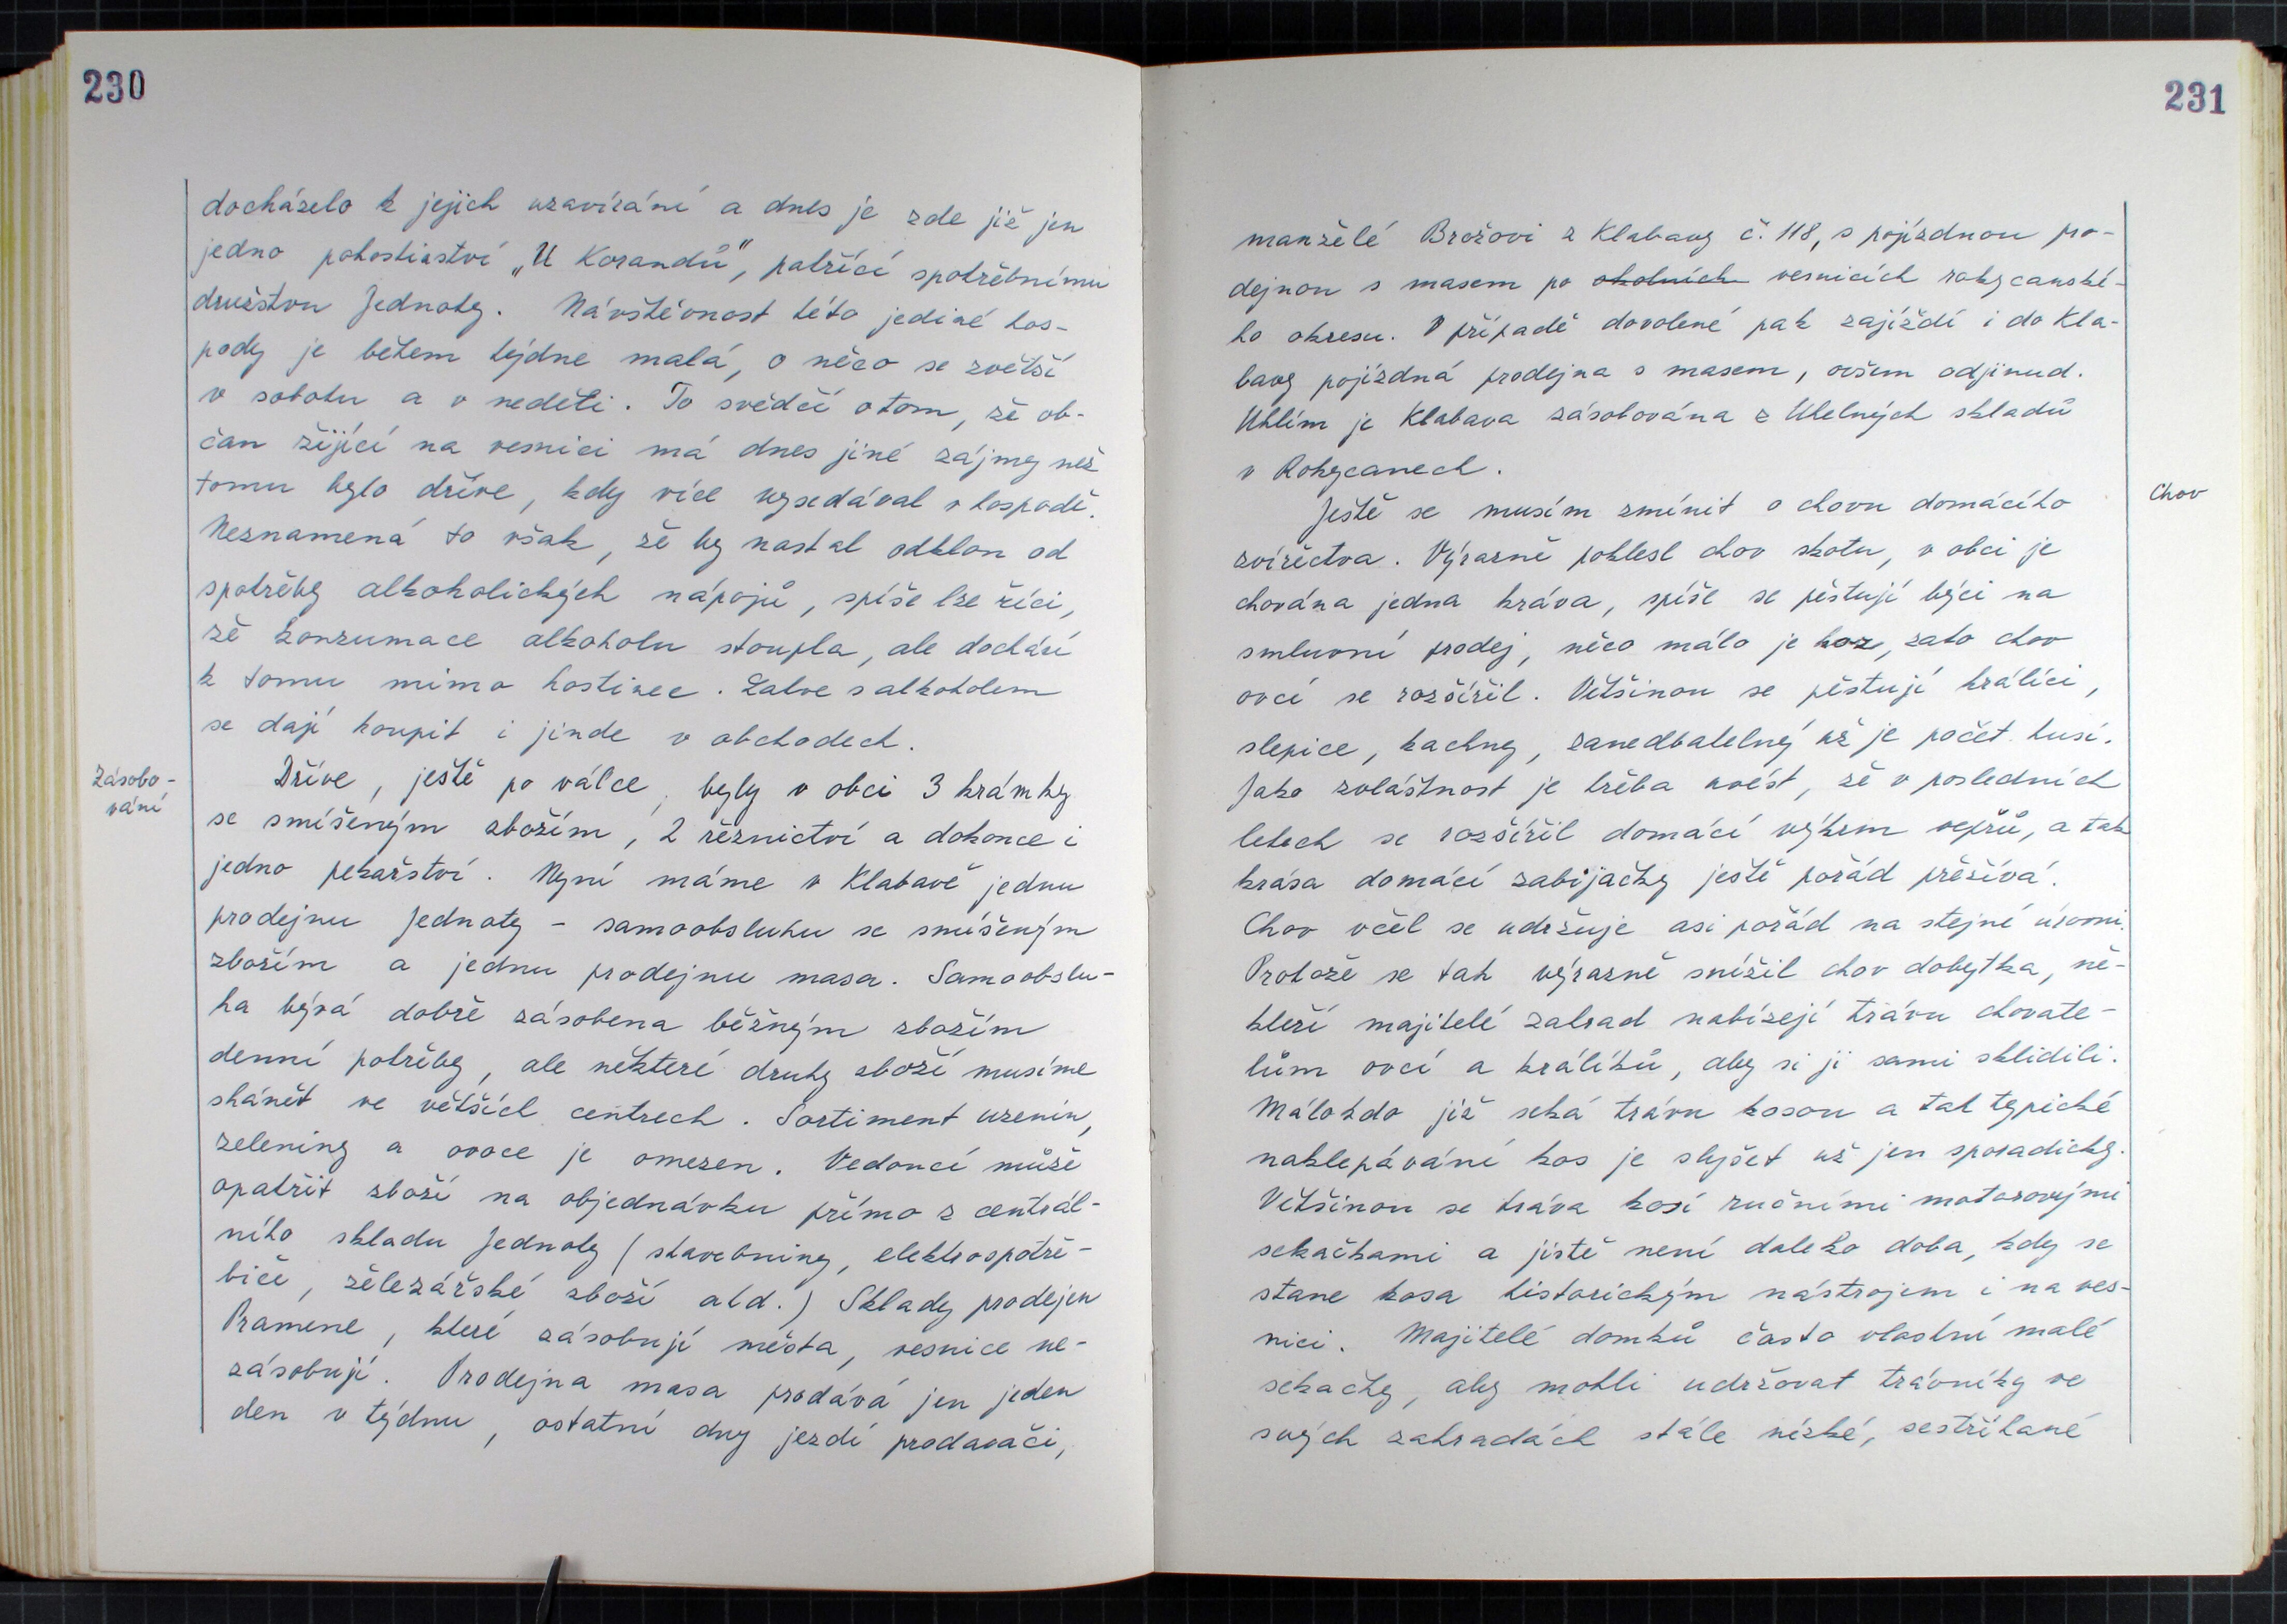 230
docházelo k jejich uzavírání a dnes je zde již jen
jedno pohostinství „U Korandů", patřící spotřebnímu
družstvu Jednoty. Návštěvnost této jediné hos-
pody je během týdne malá, o něco se zvětší
v sobotu a v neděli. To svědčí o tom, že ob-
čan žijící na vesnici má dnes jiné zájmy než
tomu bylo dříve, kdy více vysedával v hospodě.
Neznamená to však, že by nastal odklon od
spotřeby alkoholických nápojů, spíše lze říci,
že konzumace alkoholu stoupla, ale dochází
k tomu mimo hostinec. Lahve s alkoholem
se dají koupit i jinde v obchodech.
Zásobo-
vání
Dříve, ještě po válce, byly v obci 3 krámky
se smíšeným zbožím, 2 řeznictví a dokonce i
jedno pekařství. Nyní máme v Klabavě jednu
prodejnu Jednoty - samoobsluhu se smíšeným
zbožím a jednu prodejnu masa. Samoobslu-
ha bývá dobře zásobena běžným zbožím
denní potřeby, ale některé druhy zboží musíme
shánět ve větších centrech. Sortiment uzenin,
zeleniny a ovoce je omezen. Vedoucí může
opatřit zboží na objednávku přímo z centrál-
ního skladu Jednoty (stavebniny, elektrospotře-
biče, želežářské zboží atd.) Sklady prodejen
Pramene, které zásobují města, vesnice ne-
zásobují. Prodejna masa prodává jen jeden
den v týdnu, ostatní dny jezdí prodavači,
231
manželé Brožovi z Klabavy č. 118, s pojízdnou pro-
dejnou s masem po okolních vesnicích rokycanské-
ho okresu. V případě dovolené pak zajíždí i do Kla-
bavy pojízdná prodejna s masem, ovšem odjinud.
Uhlím je Klabava zásobována z Uhelných skladů
v Rokycanech.
Chov
Ještě se musím zmínit o chovu domácího
zvířectva. Výrazně poklesl chov skotu, v obci je
chována jedna kráva, spíše se pěstují býci na
smluvní prodej, něco málo je koz, zato chov
ovcí se rozšířil. Většinou se pěstují králíci,
slepice, kachny, zanedbatelný už je počet husí.
Jako zvláštnost je třeba uvést, že v posledních
letech se rozšířil domácí výkrm vepřů, a tak
krása domácí zabijačky ještě pořád přežívá.
Chov včel se udržuje asi pořád na stejné úrovni.
Protože se tak výrazně snížil chov dobytka, ně-
kteří majitelé zahrad nabízejí trávu chovate-
lům ovcí a králíků, aby si ji sami sklidili.
Málokdo již seká trávu kosou a tak typické
naklepávání kos je slyšet už jen sporadicky.
Většinou se tráva kosí ručními motorovými
sekačkami a jistě není daleko doba, kdy se
stane kosa historickým nástrojem i na ves-
nici. Majitelé domků často vlastní malé
sekačky, aby mohli udržovat trávníky ve
svých zahradách stále nízké, sestříhané